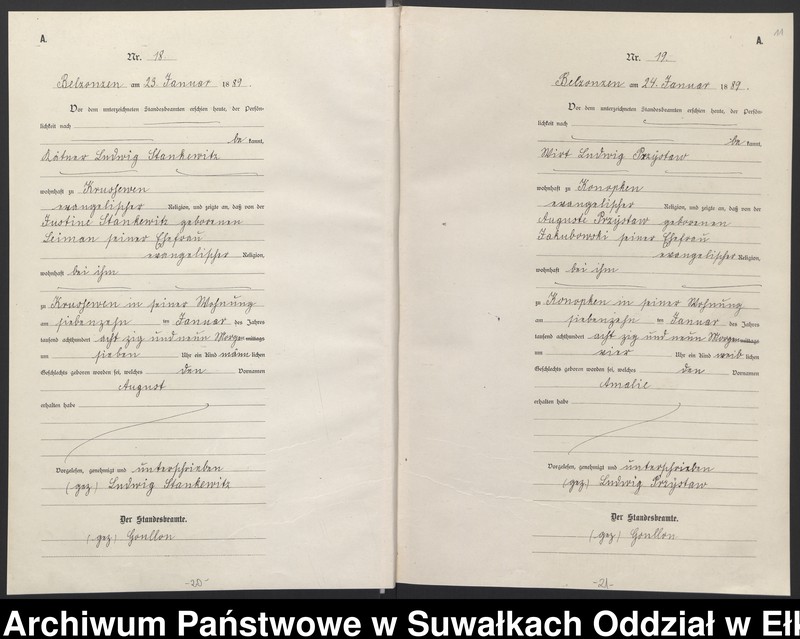 A.
Nr. 18.
Belzonzen am 23. Januar 1889.
Vor dem unterzeichneten Standesbeamten erschien heute, der Persön-
lichkeit nach
be kannt,
Kätner Ludwig Stankewitz
wohnhaft zu Krussewen
evangelischer Religion, und zeigte an, daß von der
Justine Stankewitz geborenen
Seiman seiner Ehefrau
evangelischer Religion,
wohnhaft bei ihm
zu Krussewen in seiner Wohnung
am siebenzehn ten Januar des Jahres
tausend achthundert acht zig und neun Morgens mittags
um sieben Uhr ein Kind männ lichen
Geschlechts geboren worden sei, welches den Vornamen
August
erhalten habe
Vorgelesen, genehmigt und unterschrieben
(gez) Ludwig Stankewitz
Der Standesbeamte.
(gez) Goullon
-20-
11
A.
Nr. 19.
Belzonzen am 24. Januar 1889.
Vor dem unterzeichneten Standesbeamten erschien heute, der Persön-
lichkeit nach
be kannt,
Wirt Ludwig Przystaw
wohnhaft zu Konopken
evangelischer Religion, und zeigte an, daß von der
Auguste Przystaw geborenen
Jakubowski seiner Ehefrau
evangelischer Religion,
wohnhaft bei ihm
zu Konopken in seiner Wohnung
am siebenzehn ten Januar des Jahres
tausend achthundert acht zig und neun Morgens mittags
um vier Uhr ein Kind weib lichen
Geschlechts geboren worden sei, welches den Vornamen
Amalie
erhalten habe
Vorgelesen, genehmigt und unterschrieben
(gez) Ludwig Przystaw
Der Standesbeamte.
(gez) Goullon
-21-
Archiwum Państwowe w Suwałkach Oddział w Ełk